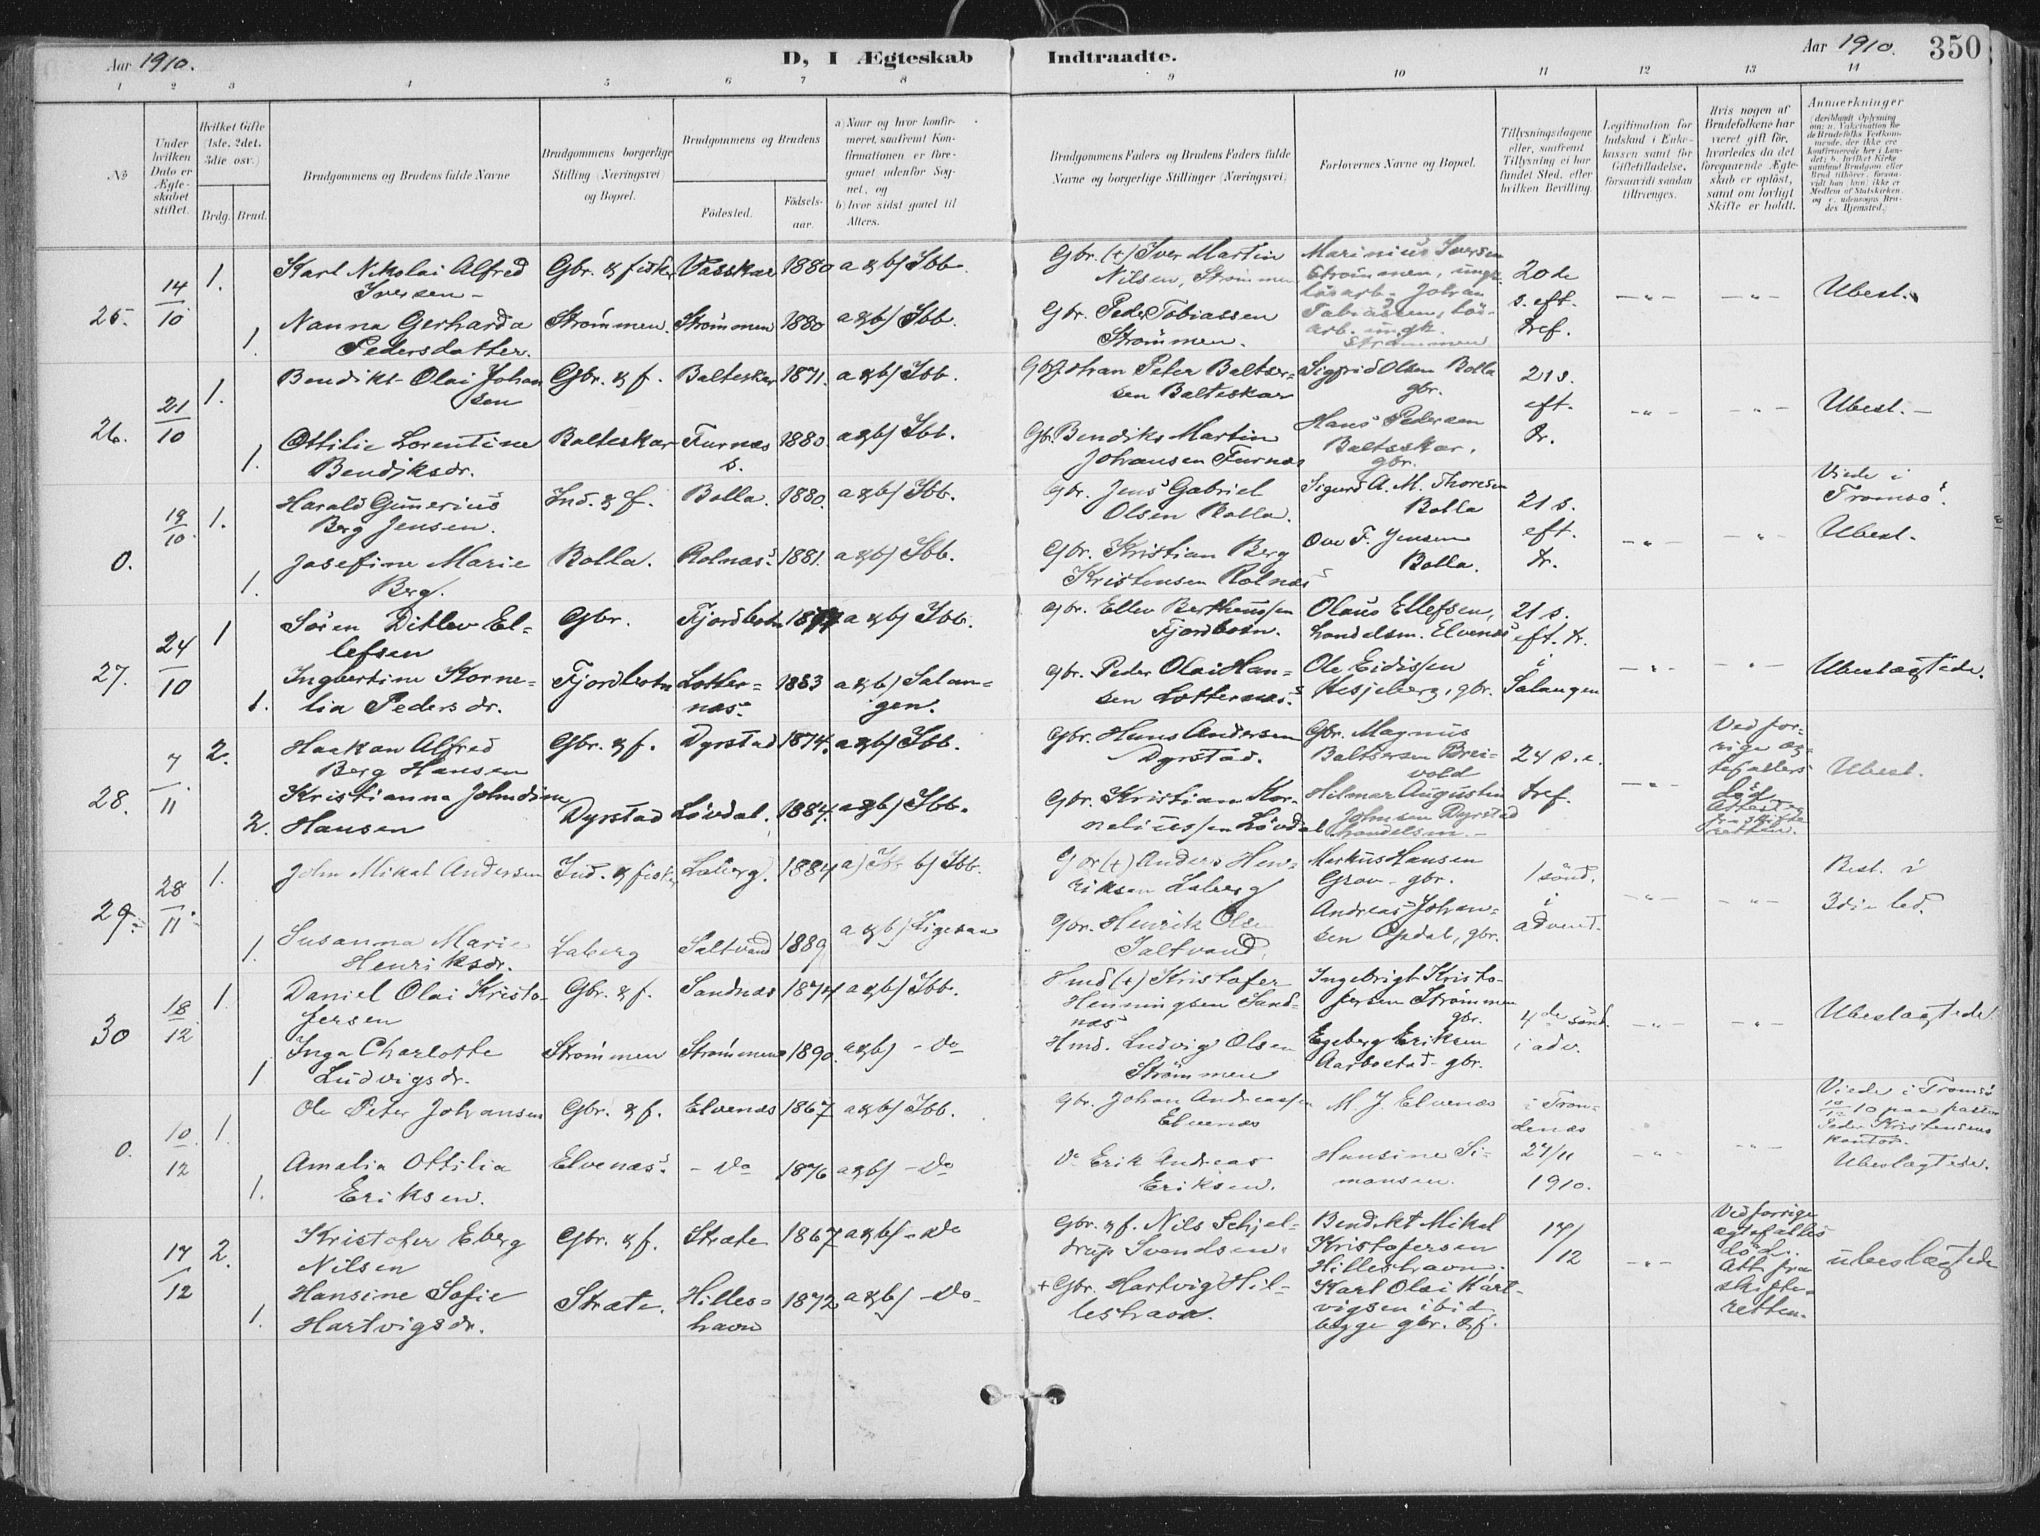 Aar 1910.
D, I Ægteskab Indtraadte.
Aar 1910.
350
1 2 3 4 5 6 7 8 9 10 11 12 13 14
No
Under hvilken Dato er Ægteskabet stiftet.
Hvilket Gifte (1ste, 2det, 3die osv.)
Brdg. Brud.
Brudgommens og Brudens fulde Navne
Brudgommens borgerlige Stilling (Næringsvei) og Bopæl.
Brudgommens og Brudens
Fødested.
Fødselsaar.
a) Naar og hvor konfirmeret, saafremt Konfirmationen er foregaaet udenfor Sognet, og
b) hvor sidst gaaet til Alters.
Brudgommens Faders og Brudens Faders fulde Navne og borgerlige Stillinger (Næringsvei)
Forlovernes Navne og Bopæl.
Tillysningsdagene eller, saafremt Tillysning ei har fundet Sted, efter hvilken Bevilling.
Legitimation for Indskud i Enkekassen samt for Giftetilladelse, forsaavidt saadan tiltrænges.
Hvis nogen af Brudefolkene har været gift før, hvorledes da det foregaaende Ægteskab er opløst, samt om lovligt Skifte er holdt.
Anmærkninger
25. 14/10 1. Karl Nikolai Alfred Iversen - Gbr. & fisker Vasskar 1880 a & b) Ibb. Gbr. (+) Iver Martin Nilsen, Strømmen Marinius Iversen Strømmen, ungk. 20de s. eft. tref. Ubest.
1. Nanna Gerharda Pedersdatter. Strømmen. Strømmen 1880 a & b) Ibb. Gbr. Peder Tobiassen Strømmen. Johan Tobiassen, ungk. Strømmen
26. 21/10 1. Bendikt Olai Johansen Gbr. & f. Balteskar 1871. a & b) Ibb. Gbr. Johan Peter Baltsersen Balteskar Sigfrid Olsen Bolla gbr. 21 s. eft. tr. Ubest. -
1. Ottilie Lorentine Bendiksdr. Balteskar Furnæs 1880. a & b) Ibb. Gbr. Bendiks Martin Johansen Furnæs Hans Pedersen Baltsskar, gbr.
0. 19/10. 1. Harald Gunnerius Berg Jensen. Ind. & f. Bolla. 1880. a & b) Ibb. gbr. Jens Gabriel Olsen Bolla. Sigurd A. M. Thoresen Bolla 21 s. eft. tr. Viede i Tromsø. Ubest.
1. Josefine Marie Berg. Bolla. Rolnæs. 1881. a & b) Ibb. Gbr. Kristian Berg Kristensen Rolnæs Ove F. Jensen Bolla.
27. 24/10 1 Søren Ditlev Ellefsen Gbr. Fjordbotn a & b) Ibb. Gbr. Ellev Fjordbotn. Olaus Ellefsen, Handelsm. Elvenæs 21 s. eft. tr. i Salangen Ubeslægtede.
1. Ingbertine Kornelia Pedersdr. Fjordbotn Lotternæs. 1883 a & b) Salangen. gbr. Peder Olai Hansen Lotternæs. Ole Eidissen Hesjeberg, gbr.
28. 7/11. 2. Haakon Alfred Berg Hansen Gbr. & f. Dyrstad 1874. a & b) Ibb. Gbr. Hans Andersen Dyrstad. Gbr. Magnus Baltsersen Breivold 24 s. e. tref. Ved forrige ægtefællers død. Attest fra skifteretten. Ubest.
2. Kristianna Johndine Hansen Dyrstad Løvdal. 1884. a & b) Ibb. Gbr. Kristian Korneliussen Løvdal Hilmar Augustin Johnsen Dyrstad handelsm. -
29. 28/11. 1. John Mikal Andersen Ind. & fisker Laberg. 1884 a) Ibb b) Ibb. Gbr (+) Anders Henriksen Laberg Markus Hansen Grov - gbr. 1 sønd. i advent. Best. i 3die led.
1. Susanna Marie Henriksdr. Laberg Saltvand 1889 a & b) Ligesaa Gbr. Henrik Olsen Saltvand. Andreas Johansen Opdal, gbr.
30 18/12 1. Daniel Olai Kristofersen Gbr. & f. Sandnæs 1874 a & b) Ibb. Hmd (+) Kristofer Henningsen Sandnæs Ingebrigt Kristofersen Strømmen gbr. 4de sønd. i adv. Ubeslægtede
1 Inga Charlotte Ludvigsdr. Strømmen Strømmen 1890. a & b) - Do Hmd. Ludvig Olsen Strømmen Egeberg Eriksen Aarbostad - gbr.
0. 10/12 1. Ole Peter Johansen Gbr. & f. Elvenæs 1867 a & b) Ibb. gbr. Johan Andreassen Elvenæs M. J. Elvenæs i Trondenæs 27/11 1910. Viede i Tromsø 10/12 10 paa pastor Peder Kristensens kontor. Ubeslægtede.
1. Amalia Ottilia Eriksen. Elvenæs. - Do 1876 a & b) - Do Do Erik Andreas Eriksen. Hansine Simonsen.
17/12 2. Kristofer Eberg Nilsen Gbr. & f. Stræte 1867 a & b) - Do Gbr. & f. Nils Schjeldrup Svendsen. Bendikt Mikal Kristofersen Hilleshavn. 17/12 Ved forrige ægtefælles død. Att. fra skifteretten. ubeslægtede
1. Hansine Sofie Hartvigsdr. Stræte. Hilleshavn 1872 a & b) - Do - + Gbr. Hartvig Hilleshavn. Karl Olai Hartvigsen ibid. begge gbr. & f.